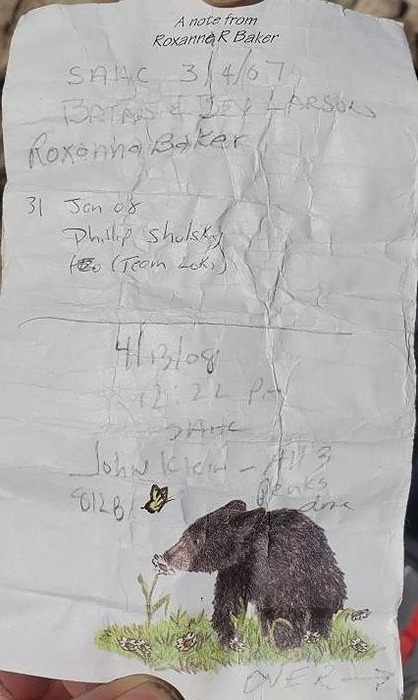 A note from
Roxanna R Baker
SAHC 3/4/07
& Dev Larson
Roxanna Baker
31 Jan 08
Phillip Shulsky
(Team Loki)
4/13/08
12:22 PM
SAHC
John Klein - All 3
Peaks
done
OVER →